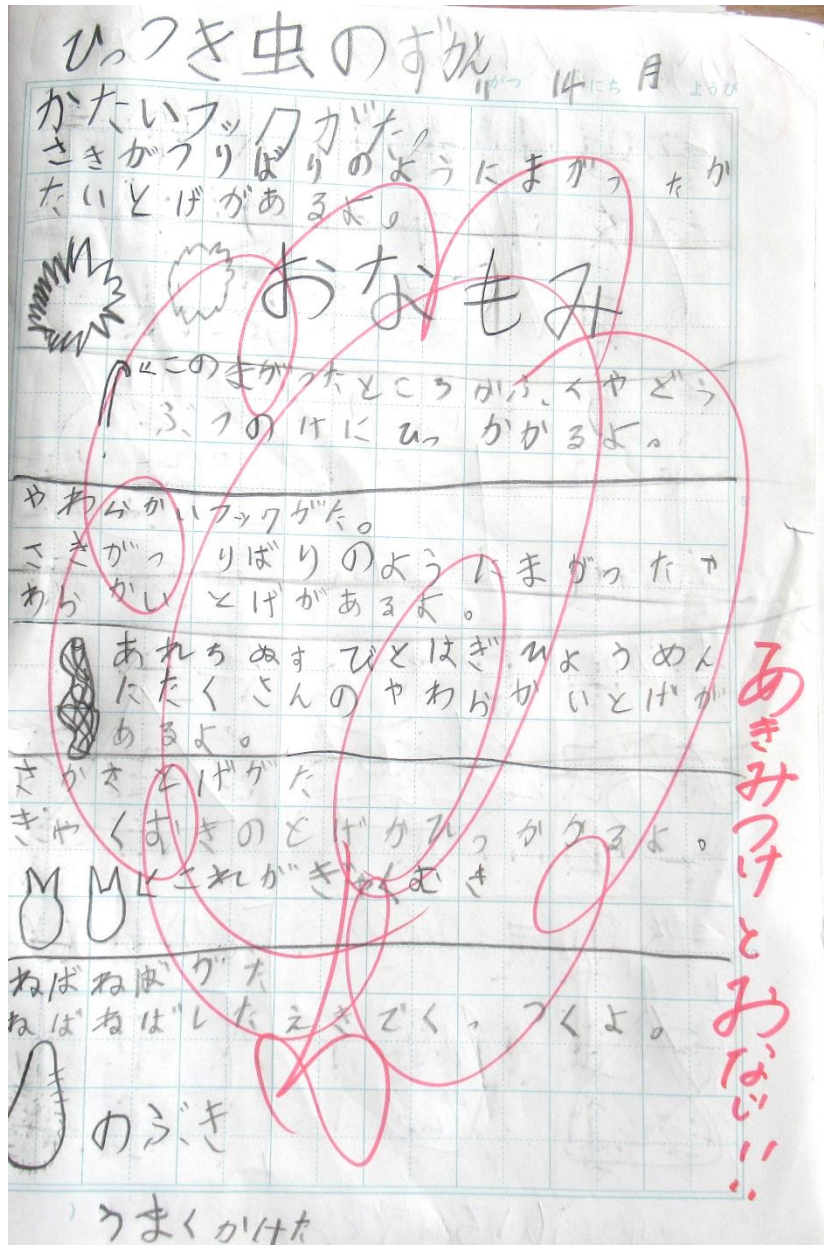 ひっつき虫のずかん
11がつ14にち月ようび
かたいフックがた。
さきがつりばりのようにまがったか
たいとげがあるよ。
おなもみ
←このまがったところがふくやどう
ぶつのけにひっかかるよ。
やわらかいフックがた。
さきがつりばりのようにまがったや
わらかいとげがあるよ。
あれちぬすびとはぎひょうめん
にたくさんのやわらかいとげが
あるよ。
さかさとげがた
ぎゃくむきのとげがひっかかるよ。
←これがぎゃくむき
ねばねばがた
ねばねばしたえきでくっつくよ。
のぶき
うまくかけた
あきみつけと